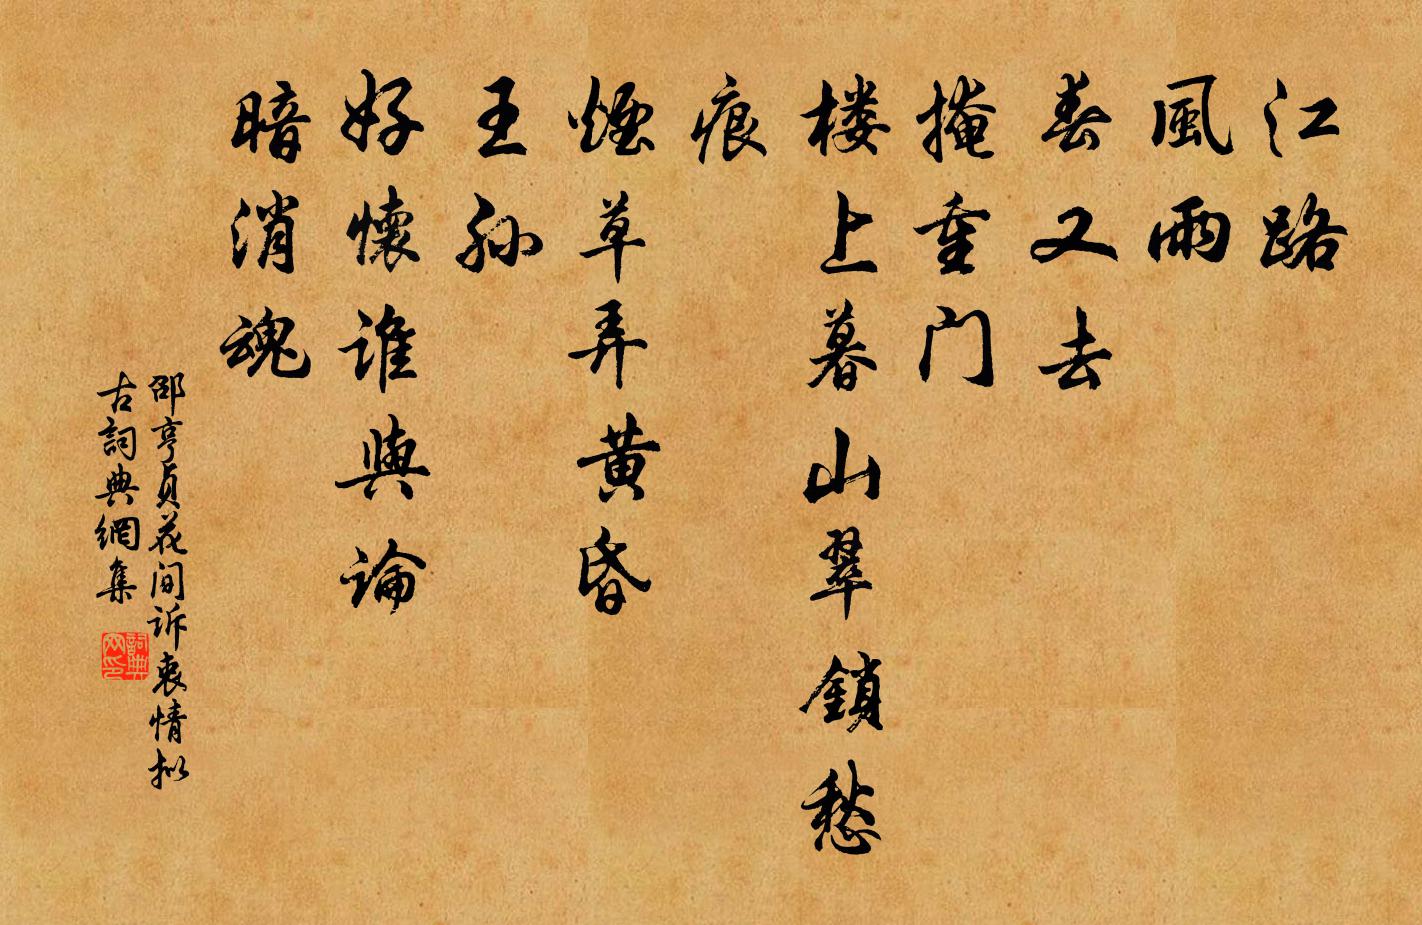 江路
風雨
春又去
掩重门
楼上暮山翠鎖愁
痕
煙草弄黄昏
王孙
好懷谁與論
暗消魂
邵亨貞花间诉衷情拟
古詞典網集
詞典网印